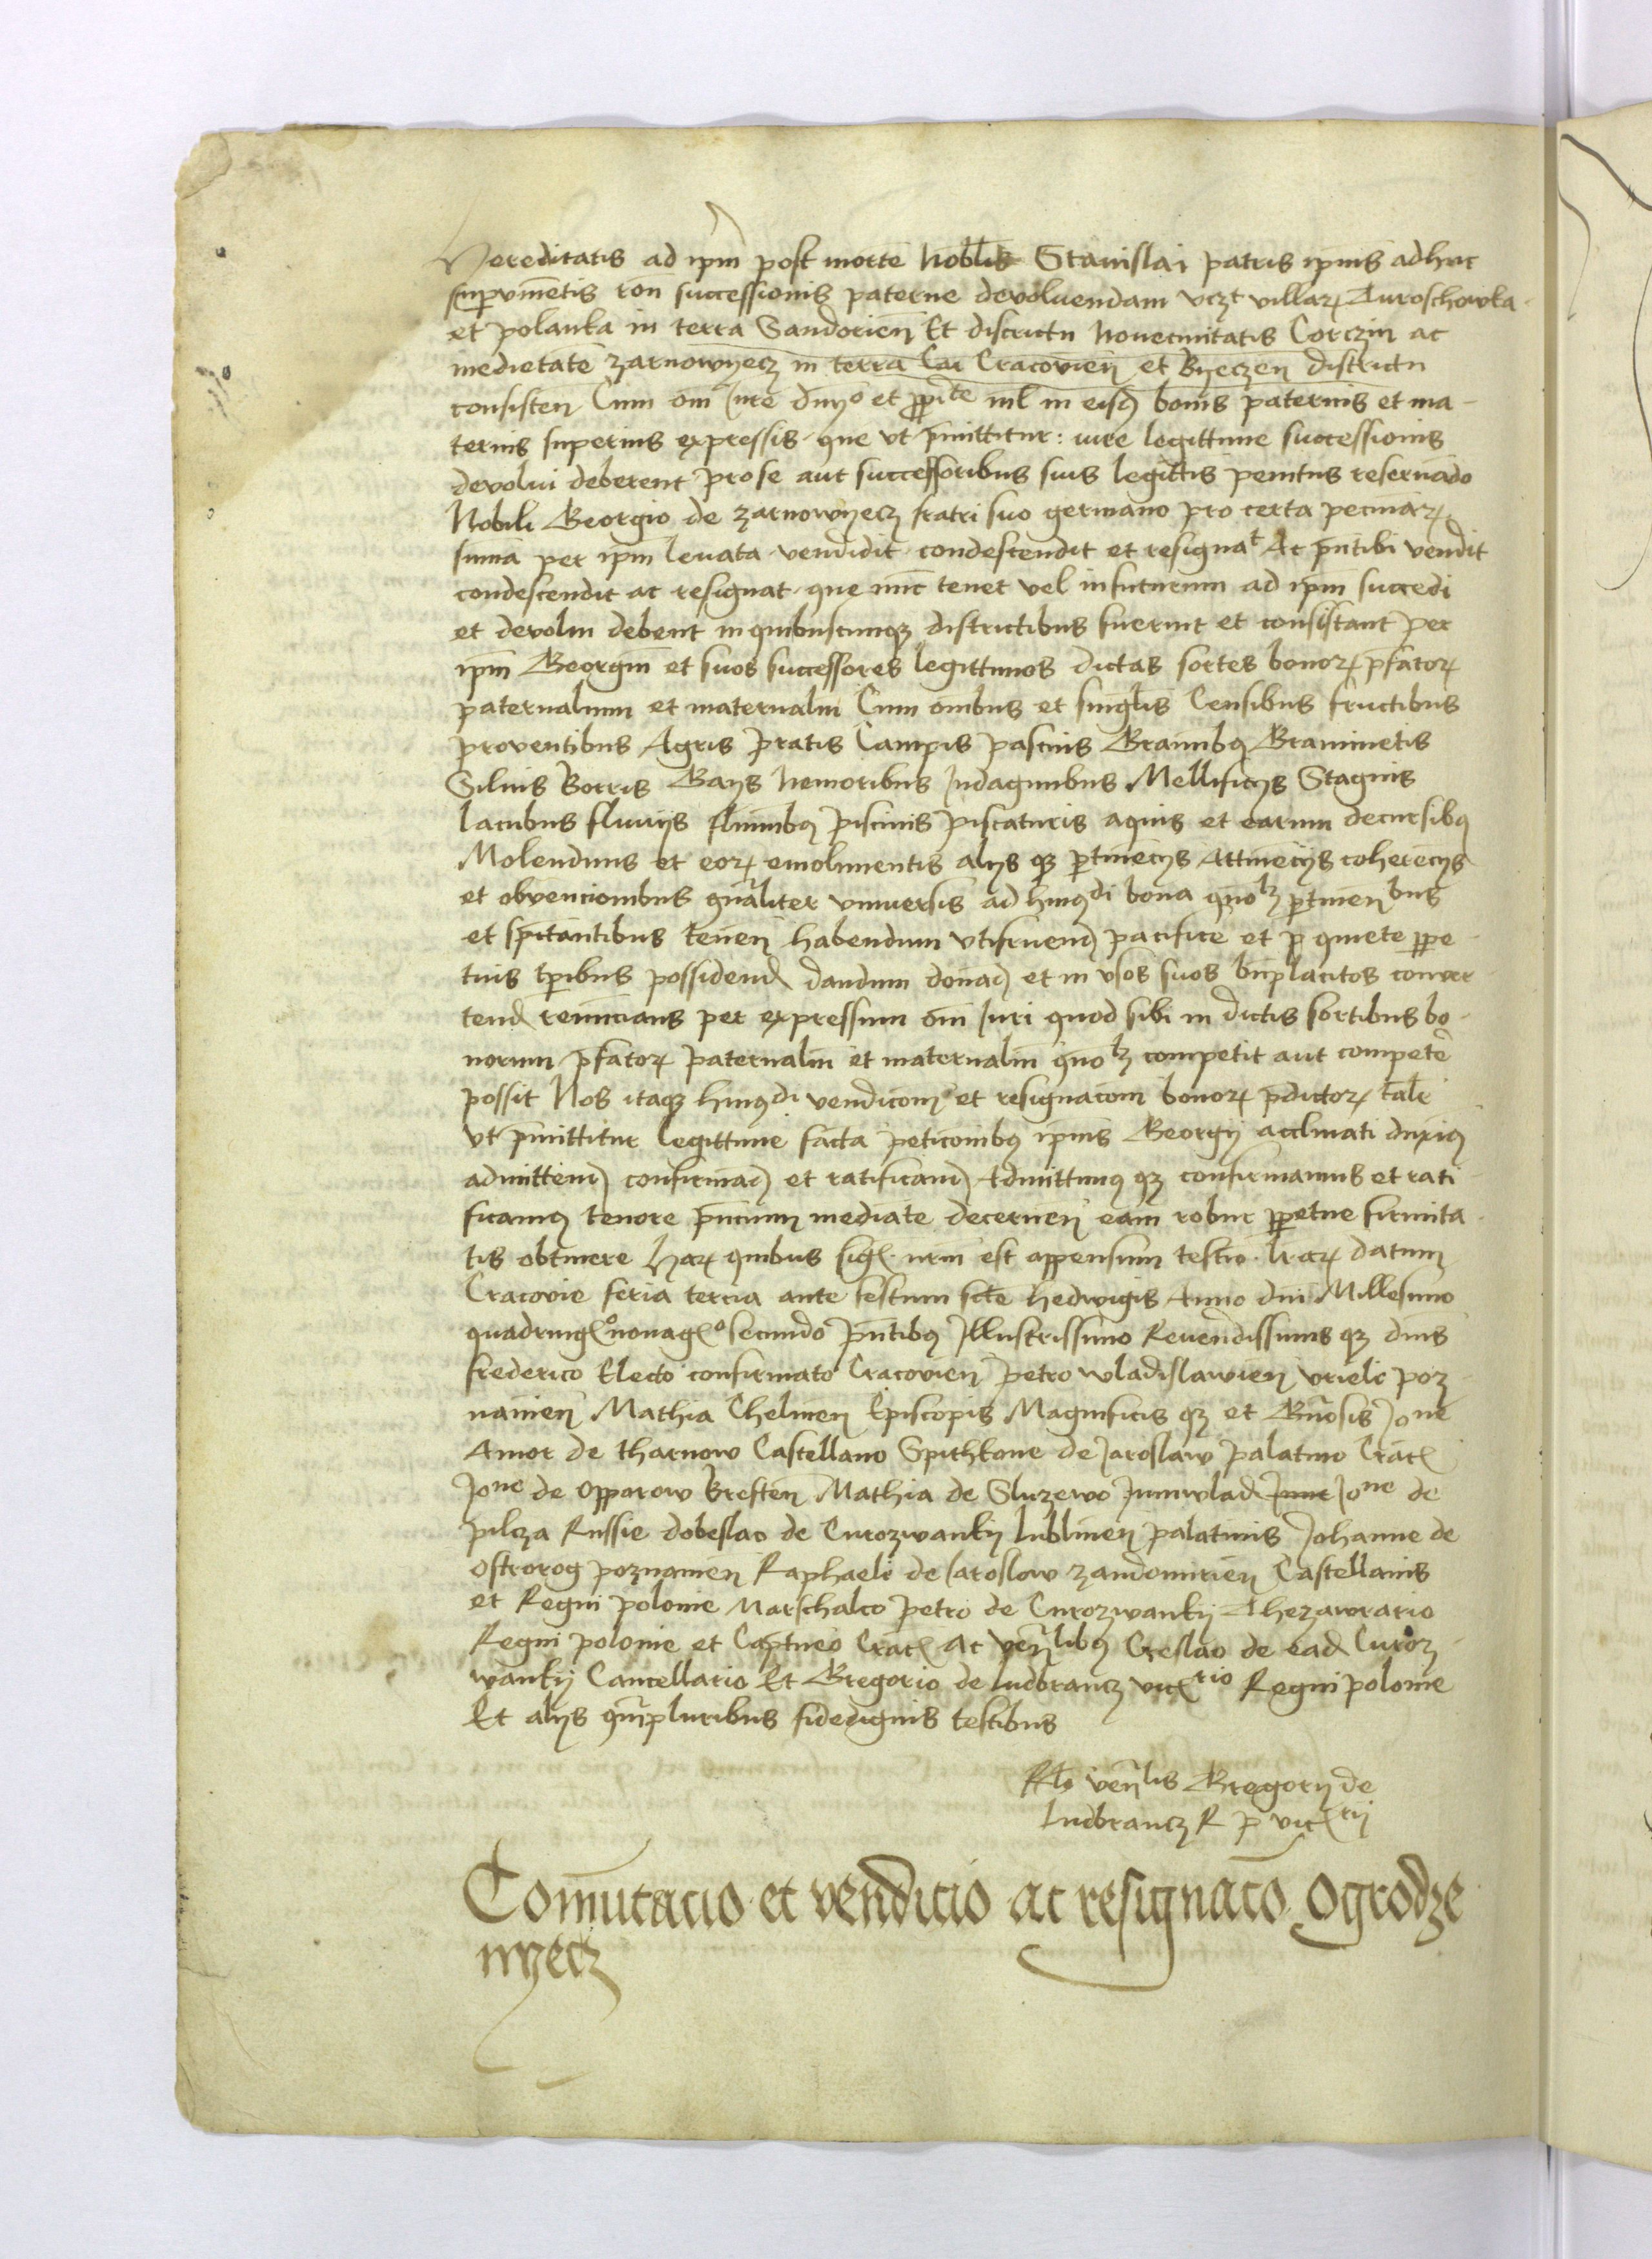 Hereditatis ad ipm̄ post mortē Nobl̄is Stanislai patris ipiūs adhuc
supvinētis rōn successionis paterne devoluendam vczt villarꝝ Auroschowka
et polanka in terra Sandoriēn Et districtu Novecivitatis Corczin ac
medietatē Zarnowyecz in terra Cracoviēn et Byeczen districtu
consisteñ Cum om̄i Jure dnyo et ꝓpite nl̄ in eisdꝫ bonis paternis et ma-
ternis superius expressis que vt p̄mittitur: iure legittime successionis
devolui deberent pro se aut successoribus suis legittis penitus reservādo
Nobili Georgio de Zarnowyecz fratri suo germano pro certa pecuniarꝝ
sum̄a per ipm̄ levata vendidit condescendit et resignat Ac p̄ntibꝫ vendit
condescendit ac resignat que nūc tenet vel in futurum ad ipm̄ succedi
et devolui debent in quibuscumqꝫ districtibus fuerint et consistant per
ipm̄ Georgiū et suos successores legittimos dictas sortes bonorꝝ p̄fatorꝝ
paternalium et maternaliū Cum om̄ibus et singl̄is Censibus fructibus
proventibus Agris pratis Campis pascuis Graminibꝫ Graminetis
Siluis Borris Gays Nemoribus Indaginibus Mellificijs Stagnis
lacubus fluvijs fluminibꝫ piscinis piscaturis aquis et earum decursibꝫ
Molendinis et eorꝝ emolimentis alijs qꝫ ꝑtinēcijs Attinēcijs coherēcijs
et obvencionibus gn̄aliter vniversis ad hmoꝫdi bona quolꝫ ꝑtinenbus
et spc̄tantibus teneñ habendum vtifruendꝫ pacifice et p quiete ꝓpe-
tuis tꝑibus possidendꝫ dandum donandꝫ et in vsos suos bn̄placitos conver-
tendꝫ renūcians per expressum om̄i Juri quod sibi in dictis sortibus bo-
norum p̄fatorꝝ paternaliū et maternaliū quolꝫ competit aut competē
possit Nos itaqꝫ hmoꝫdi vendicom̄ et resignacom̄ bonorꝝ p̄dictorꝝ tal̄r
vt p̄mittitur legittime facta peticonibꝫ ipiūs Georgij acclinati duximꝫ
admittendꝫ confirmandꝫ et ratificandꝫ Admittimꝫ qꝫ confirmamus et rati-
ficamꝫ tenore p̄ncium mediāte decerneñ eam robur ꝓpetue firmita-
tis obtinere harꝝ quibus sigꝉ nrm̄ est appensum testīo lr̄arꝝ datum
Cracovie feria tercia ante festum scte Hedwigis Anno dn̄i Millesimo
quadringꝉo nonagꝉo secundo p̄ntibꝫ Illustrissimo Reverēndissimis qꝫ dn̄is
frederico Electo confirmato Cracovieñ petro Wladislawieñ vriele poz-
naniēn Mathia Chelmeñ Episcopis Magnificis qꝫ et Gn̄osis Jone
Amor de tharnow Castellano Spithkone de Jaroslaw palatino Cracꝉ
Jone de Opparow Bresteñ Mathia de Sluzewo Juniwlad Jone de
pilcza Russie dobeslao de Curozwankij lubliñen palatinis Johanne de
Ostrorog poznaniēn Raphaele de Jaroslow Zandomirieñ Castellanis
et Regni polonie Marschalco petro de Curozwankij Thezawrario
Regni polonie et Capitneo Cracꝉ Ac ven̄libꝫ Creslao de eadꝫ Curoz-
wankij Cancellario Et Gregorio de ludbrancz vicꝉrio Regni polonie
Et alijs qm̄pluribus fidedignis testibus
Rl̄o ven̄lis Gregorij de
ludbrancz R p vicꝉrij
Com̄utacio et vendicio ac resignaco Ogrodze
nyecz